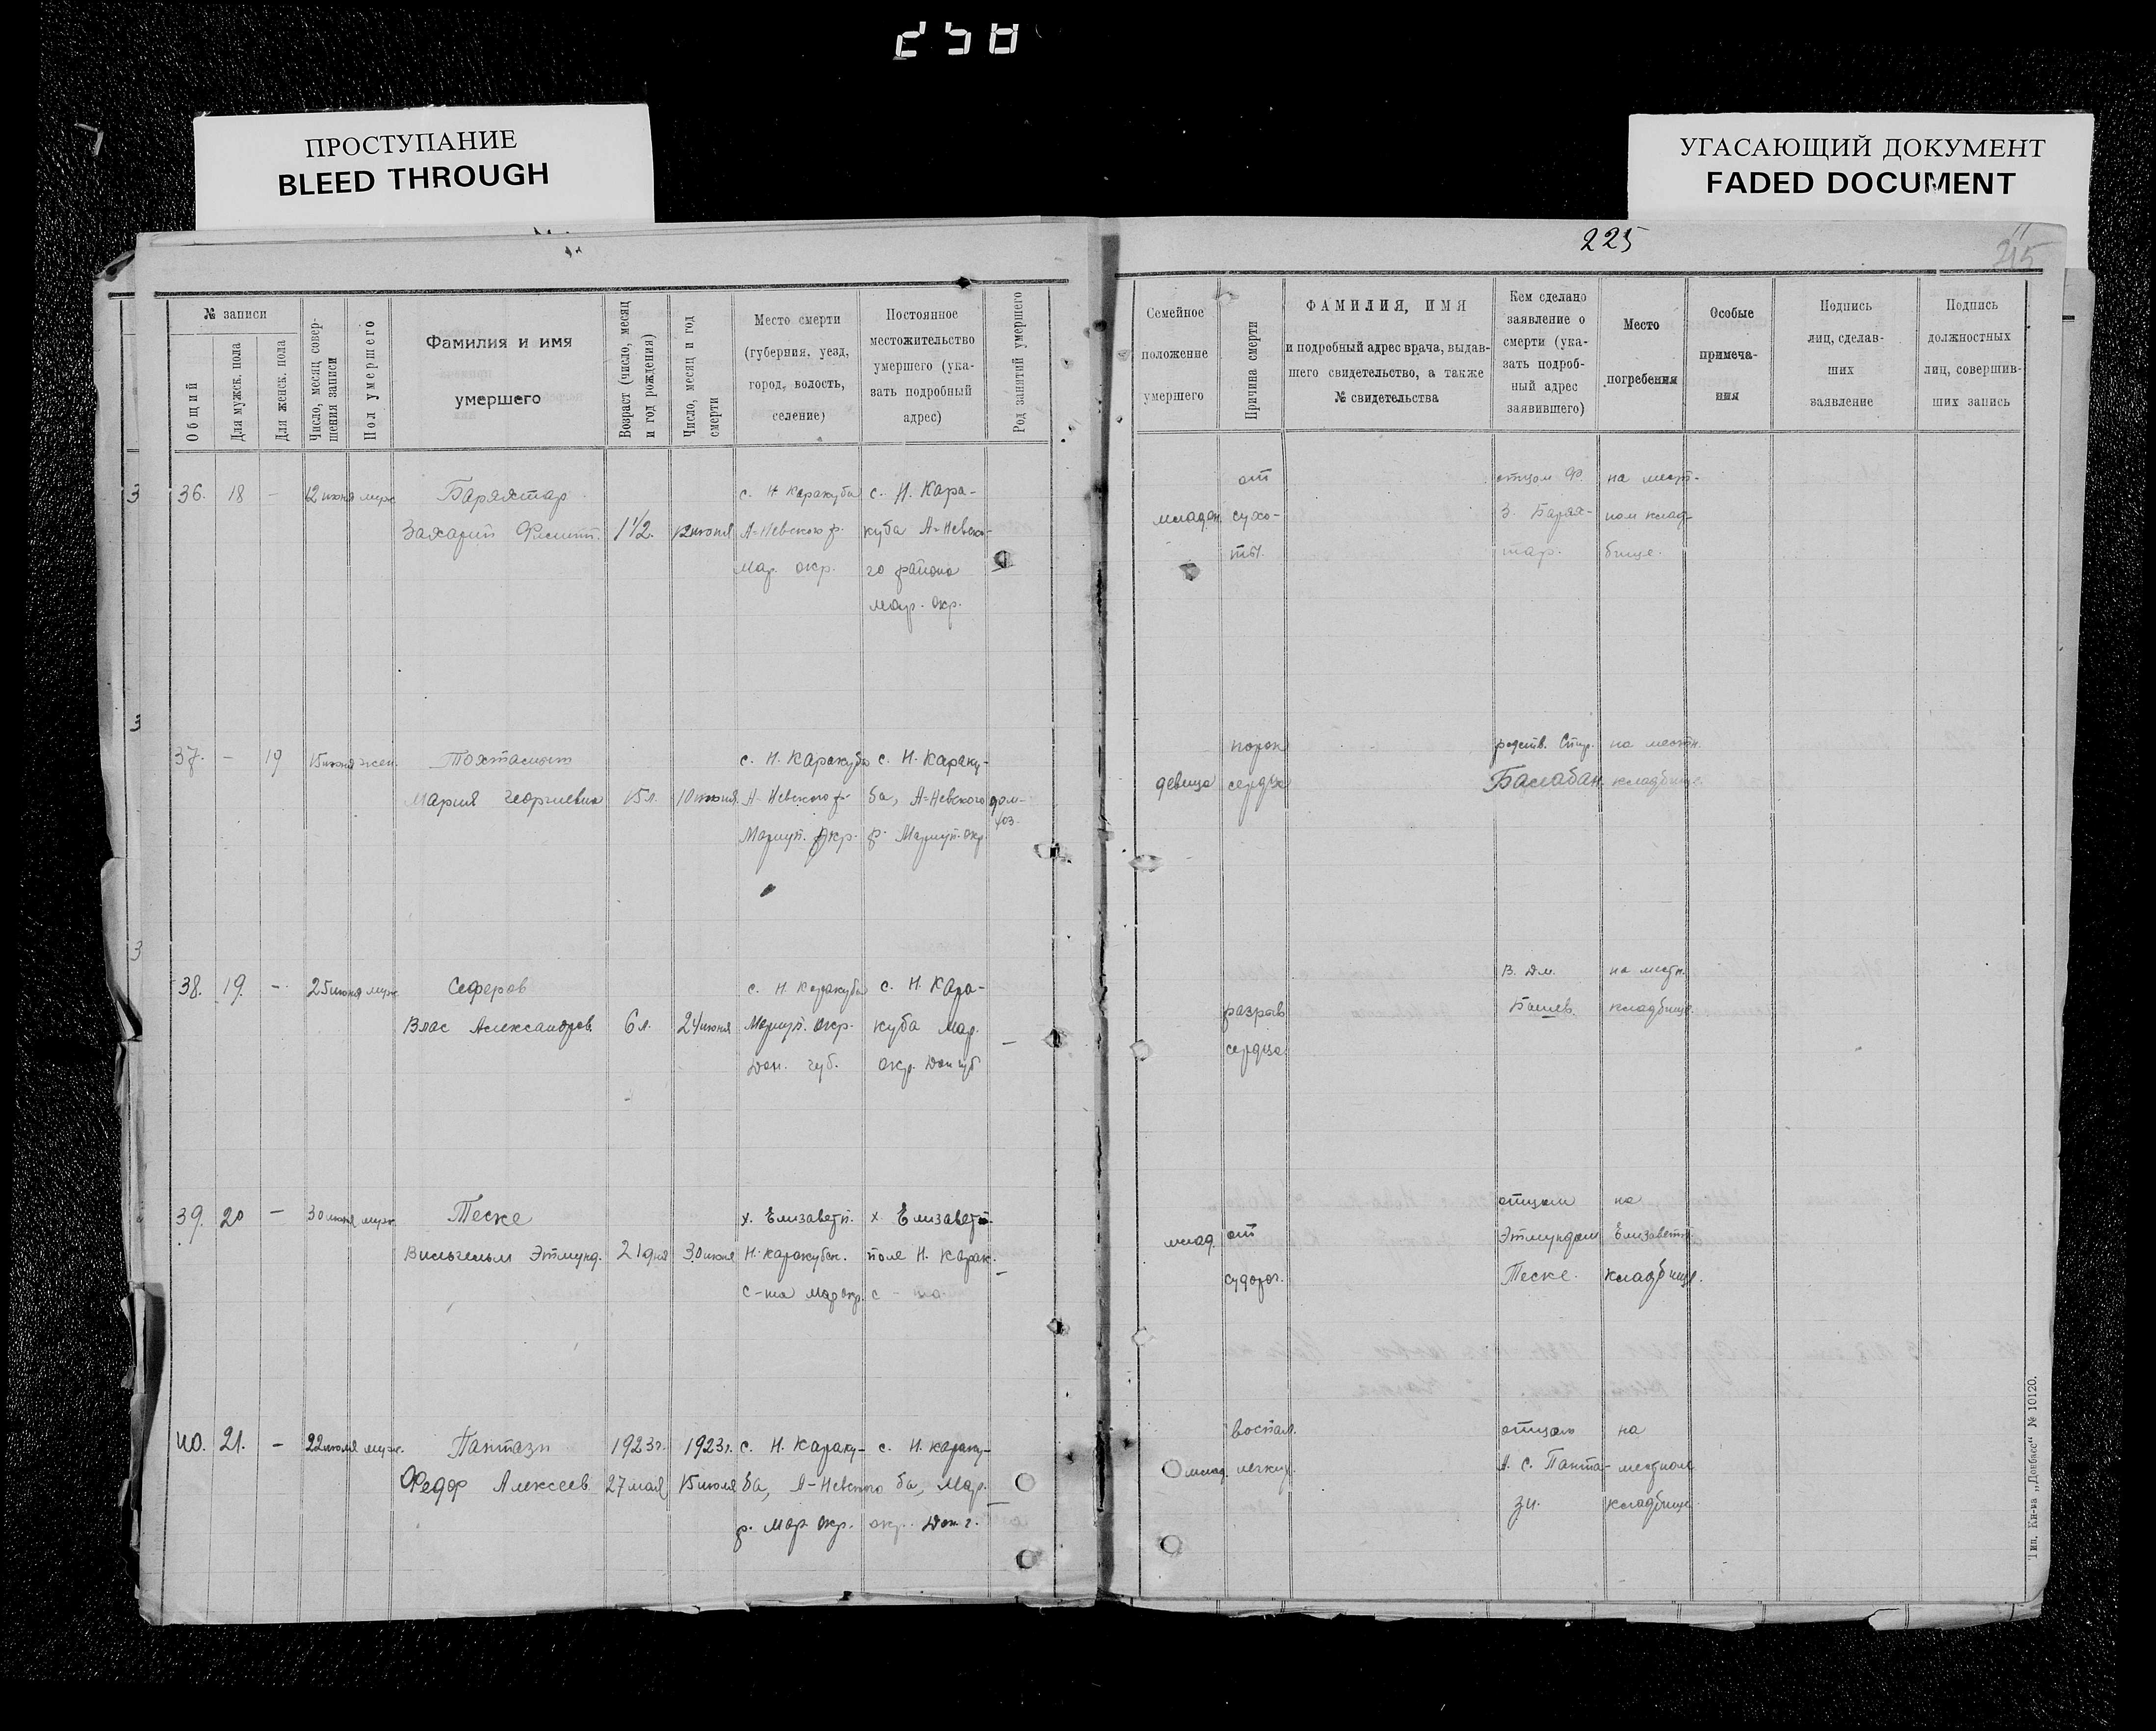 258
ПРОСТУПАНИЕ
BLEED THROUGH
УГАСАЮЩИЙ ДОКУМЕНТ
FADED DOCUMENT
225
№ записи
Общий
Для мужск. пола
Для женск. пола
Число, месяц совер-
шения записи
Пол умершего
Фамилия и имя
умершего
Возраст (число, месяц
и год рождения)
Число, месяц и год
смерти
Место смерти
(губерния, уезд,
город, волость,
селение)
Постоянное
местожительство
умершего (ука-
зать подробный
адрес)
Род занятий умершего
Семейное
положение
умершего
Причина смерти
ФАМИЛИЯ, ИМЯ
и подробный адрес врача, выдав-
шего свидетельство, а также
№ свидетельства
Кем сделано
заявление о
смерти (ука-
зать подроб-
ный адрес
заявившего)
Место
погребения
Особые
примеча-
ния
Подпись
лиц, сделав-
ших
заявление
Подпись
должностных
лиц, совершив-
ших запись
36. 18 - 12 июня муж.
Барахтар
Захарий Филипп.
1 1/2.
12 июня
с. Н. Каракуба
А-Невского р.
Мар. окр.
с. Н. Кара-
куба А-Невско-
го района
Мар. окр.
младен.
от
сухо-
ты.
отцом Ф.
З. Барах-
тар.
на мест-
ном клад-
бище.
37. - 19 15 июня жен.
Тохтамыш
Мария Георгиевна
15 л.
10 июня.
с. Н. Каракуба
А-Невского р.
Мариуп. окр.
с. Н. Караку-
ба, А-Невского
р. Мариуп. окр.
дом-
хоз.
девица
порок
сердца
родств. Спир.
Балабан.
на местн.
кладбище.
38. 19. - 25 июня муж.
Сеферов
Влас Александров.
6 л.
24 июня
с. Н. Каракуба
Мариуп. окр.
Дон. губ.
с. Н. Кара-
куба Мар.
окр. Дон губ
-
разрыв
сердца
В. Дм.
Башев.
на местн.
кладбище.
39. 20 - 30 июня муж.
Теске
Вильгельм Этмунд.
21 дня
30 июня
х. Елизаветп.
Н. Каракубск.
с-та Мар окр.
х Елизавет-
поле Н. Карак.
с - та.
-
млад.
от
судорог.
отцом
Этмундом
Теске.
на
Елизаветп.
кладбище.
40. 21. - 22 июля муж.
Пантази
Федор Алексеев
1923 г.
27 мая
1923 г.
15 июля
с. Н. Караку-
ба, А-Невского
р. Мар. окр.
с. Н. Караку-
ба, Мар.
окр. Дон. г.
-
млад.
воспал.
легких.
отцом
А. С. Панта-
зи.
на
местном
кладбище.
Тип. Кн-ва „Донбасс“ № 10120.